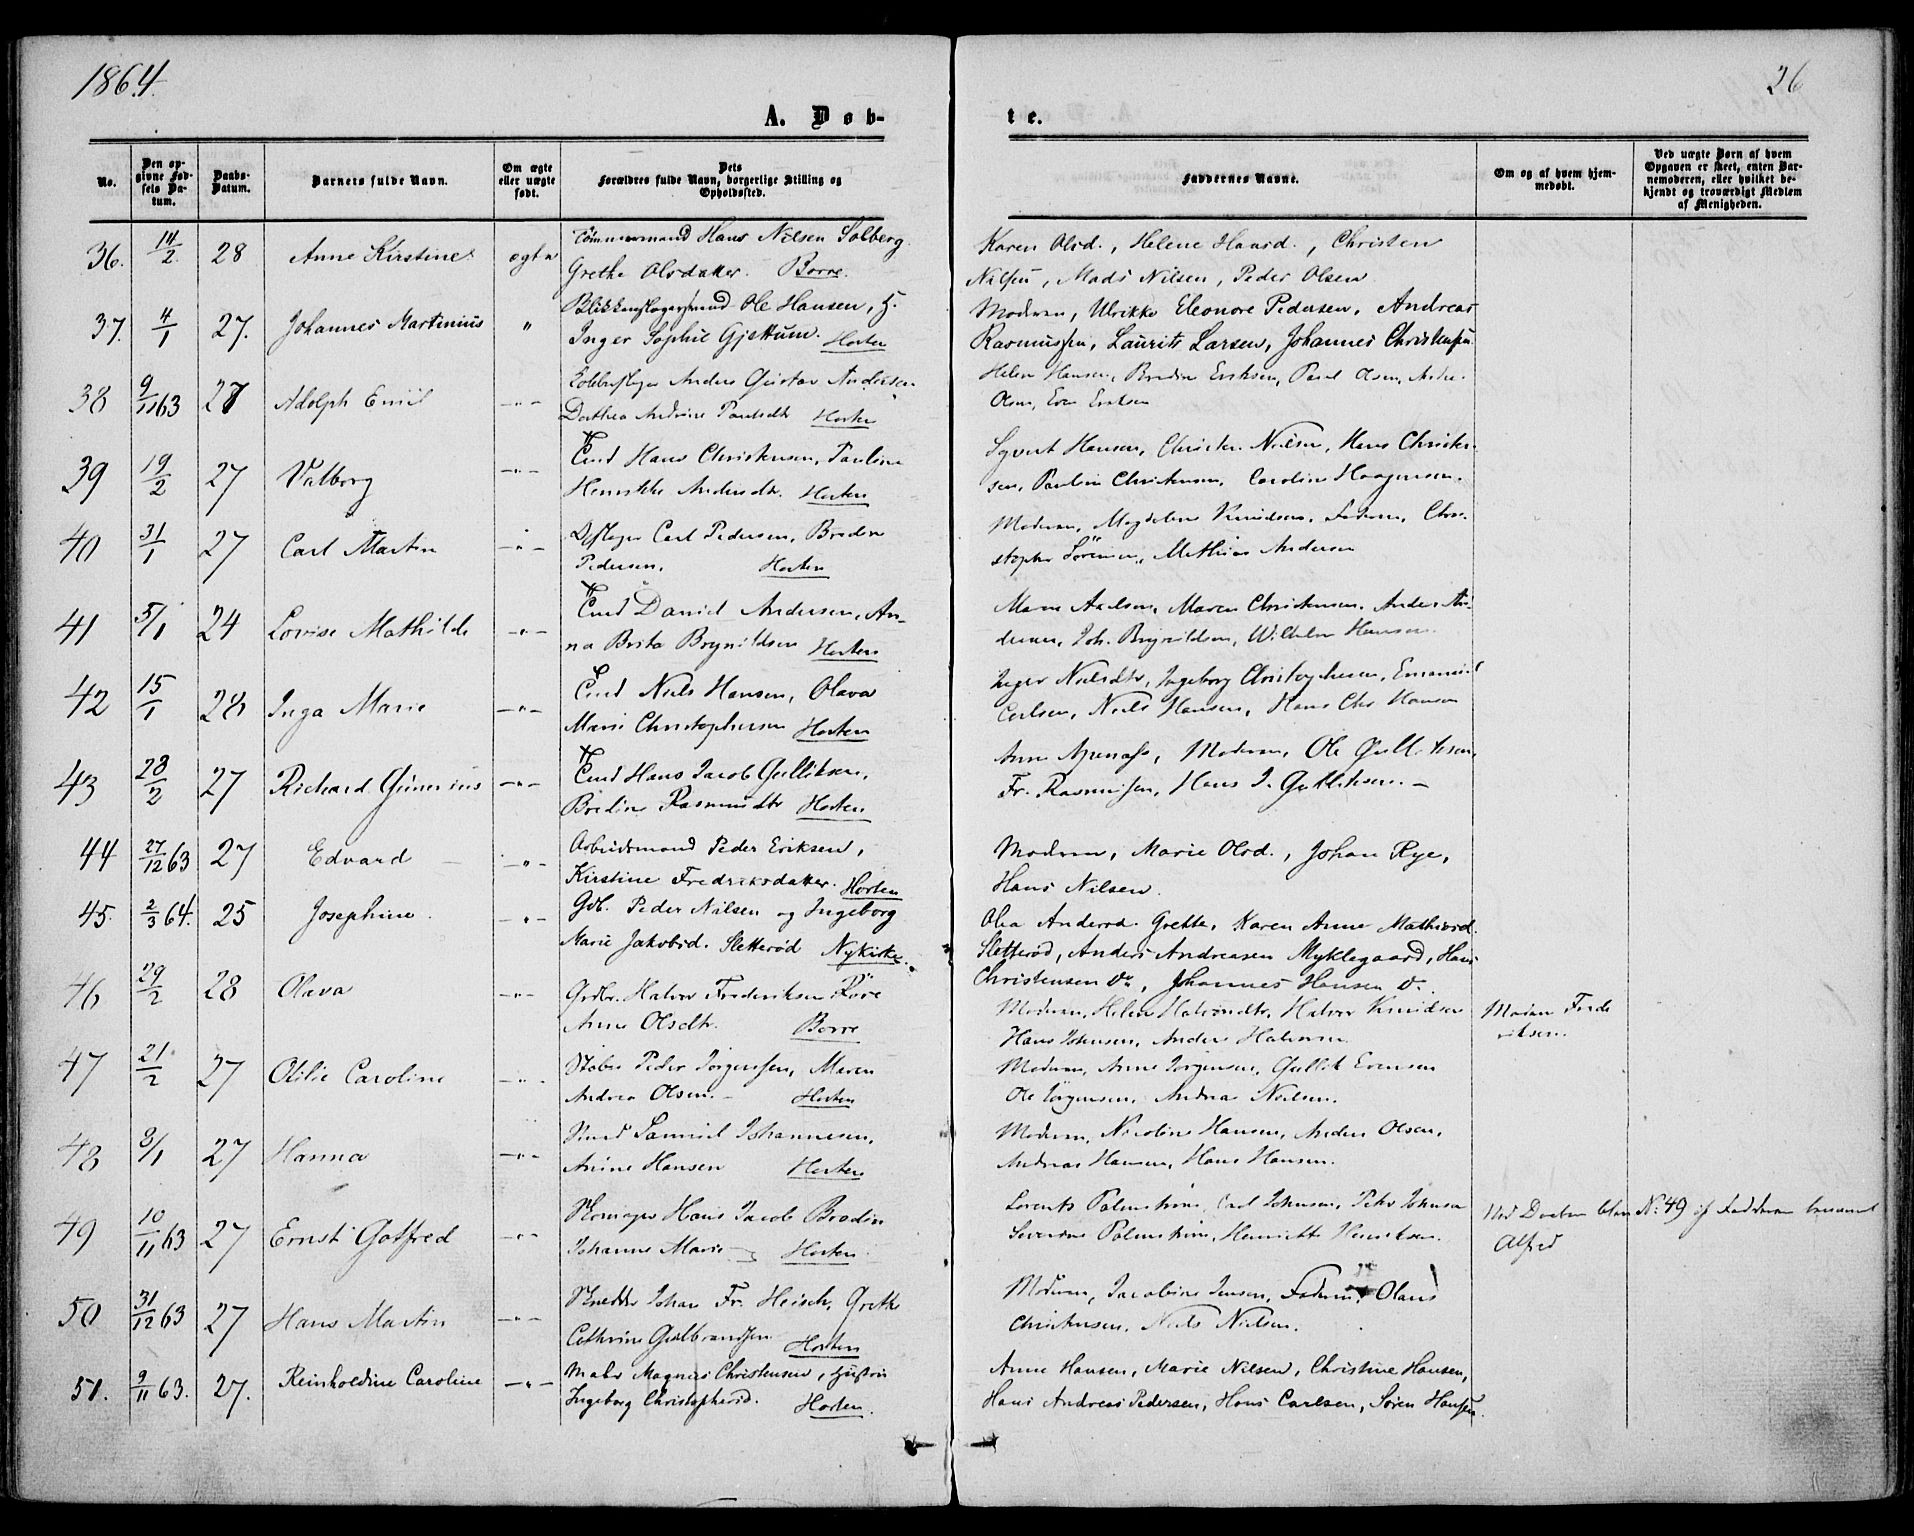 1864.
26
A. Døb-
te.
No.
Den opgivne Fødsels Datum.
Daabs-Datum.
Barnets fulde Navn.
Om ægte eller uægte født.
Dets Forældres fulde Navn, borgerlige Stilling og Opholdssted.
Faddernes Navne.
Om og af hvem hjemmedøbt.
Ved uægte Børn af hvem Opgaven er skeet, enten Barnemoderen, eller hvilket bekjendt og troværdigt Medlem af Menigheden.
36. 14/2 28 Anne Kirstine ægte Tømmermand Hans Nilsen Solberg
Grethe Olsdatter. Borre.
Karen Olsd., Helene Hansd., Christen
Nilsen, Mads Nilsen, Peder Olsen
37. 4/1 27. Johannes Martinius " Ole Hansen,
Inger Sophie Gjettum. Horten
Moderen, Ulrikke Eleonore Pedersen, Andreas
Rasmussen, Laurits Larsen, Johannes Christensen
38 9/11 63 27 Adolph Emil -"- Anders Gustav Andersen
Dorthea Andrine Paulsdtr Horten
Helene Hansen, Bredine Eriksen, Paul Olsen,
Olsen, Even Eriksen
39 19/2 27 Valborg -"- Hans Christensen, Pauline
Henrikke Andersdtr. Horten
Syvert Hansen, Christen Nielsen, Hans Christen-
sen, Pauline Christensen, Caroline Haagensen.
40 31/1 27 Carl Martin -"- Carl Pedersen, Bredine
Pedersen. Horten
Moderen, Magdalene Knudsen, Faderen, Chri-
stopher Sörensen, Mathias Andersen
41 5/1 24 Lovise Mathilde -"- Daniel Andersen, An-
na Brita Brynildsen Horten
Maren Christensen, Anders An-
dersen, Joh. Brynildsen, Wilhelm Hansen.
42 15/1 28 Inga Marie -"- Niels Hansen, Olava
Marie Christophersen Horten
Inger Nielsdtr, Ingeborg Christophersen,
Carlsen, Niels Hansen, Hans Chr Hansen
43 28/2 27 Richard Gunerius -"- Hans Jacob Gulliksen,
Bredine Rasmusdtr Horten
Anne, Moderen, Ole Gulliksen,
Fr. Rasmussen, Hans J. Gulliksen. -
44 27/12 63 27 Edvard -"- Arbeidsmand Peder Eriksen,
Kirstine Fredriksdatter. Horten
Moderen, Marie Olsd., Johan Rye,
Hans Nilsen.
45. 2/3 64. 25 Josephine. -"- Gdb. Peder Nilsen og Ingeborg
Marie Jakobsd. Sletterød Nykirke.
Olea Andersd. Grette, Karen Anne Mathisd.
Sletterød, Anders Andreasen Myklegaard, Hans
Christensen Do, Johannes Hansen Do.
46 29/2 28 Olava -"- Grdbr. Halvor Frederiksen Röre
Anne Olsdtr. Borre
Moderen, Helene Halvorsdtr, Halvor Knudsen
Hans Johnsen, Anders Halvorsen
Frede
riksen.
47 21/2 27 Otilie Caroline -"- Peder Jörgensen, Maren
Andrea Olsen. - Horten
Moderen, Anne Jörgensen, Gullik Evensen
Ole Jörgensen, Andrea Nielsen.
48 3/1 27 Hanna -"- Samuel Johannesen,
Anine Hansen Horten
Moderen, Nicoline Hansen, Anders Olsen,
Andreas Hansen, Hans Hansen.
49 10/11 63 27 Ernst Gotfred Skomager Hans Jacob Bredin
Johanne Marie Horten.
Lorents Palmström, Carl Johnsen, Peter Johnsen
Severine Palmström, Henriette Henriksen.
Ved Daaben blev No. 49 af Fadderne benævnt
Alfred
50 31/12 63 27 Hans Martin -"- Snedker Johan Fr. Heisch, Grethe
Cathrine Gulbrandsen Horten
Moderen, Jacobine Jensen, Faderen, Olaus
Christensen, Niels Nielsen.
51. 9/11 63. 27. Reinholdine Caroline -"- Maler Magnus Christensen, Hustru
Ingeborg Christophersd. Horten.
Anne Hansen, Marie Nilsen, Christine Hansen,
Hans Andreas Pedersen, Hans Carlsen, Sören Hansen.